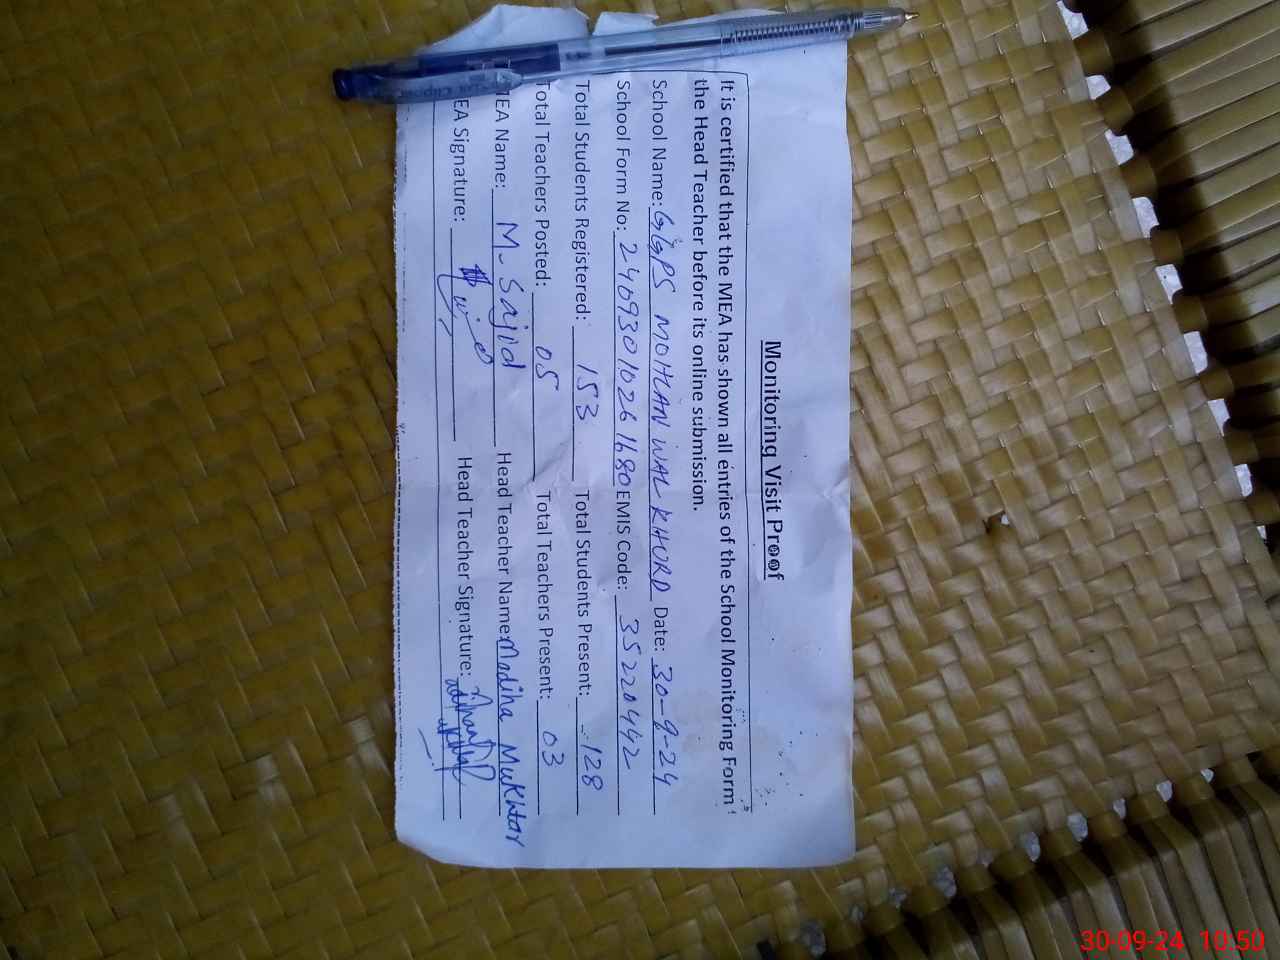 Monitoring Visit Proof
It is certified that the MEA has shown all entries of the School Monitoring Form to
the Head Teacher before its online submission.
School Name: GGPS MOHLAN WAL KHURD Date: 30-9-24
School Form No: 24093010261680 EMIS Code: 35220442
Total Students Registered: 153 Total Students Present: 128
Total Teachers Posted: 05 Total Teachers Present: 03
MEA Name: M. Sajid Head Teacher Name: Madiha Mukhtar
MEA Signature: Head Teacher Signature:
30-09-24 10:50